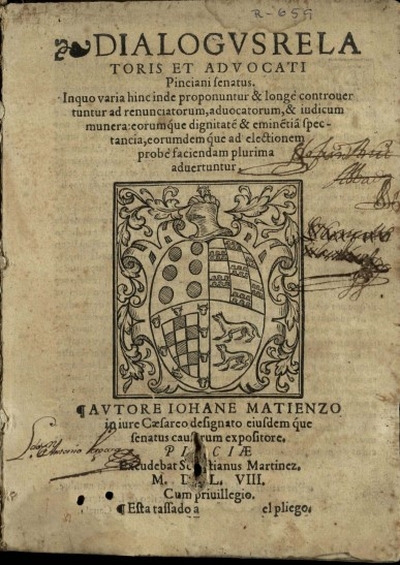 R-659
DIALOGVS RELA
TORIS ET ADVOCATI
Pinciani senatus.
In quo varia hinc inde proponuntur & longè controuer
tuntur ad renunciatorum, aduocatorum, & iudicum
munera: eorumque dignitatẽ & eminẽtiã spec-
tancia, eorumdem que ad electionem
probè faciendam plurima
aduertuntur.
¶AVTORE IOHANE MATIENZO
in iure Cæsareo designato eiusdem que
senatus causarum expositore.
PINCIÆ
Excudebat Sebastianus Martinez.
M. D. L. VIII.
Cum priuillegio.
¶Esta tassado a el pliego.